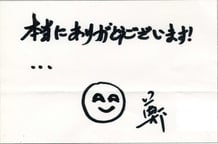 本当にありがとございます!
...